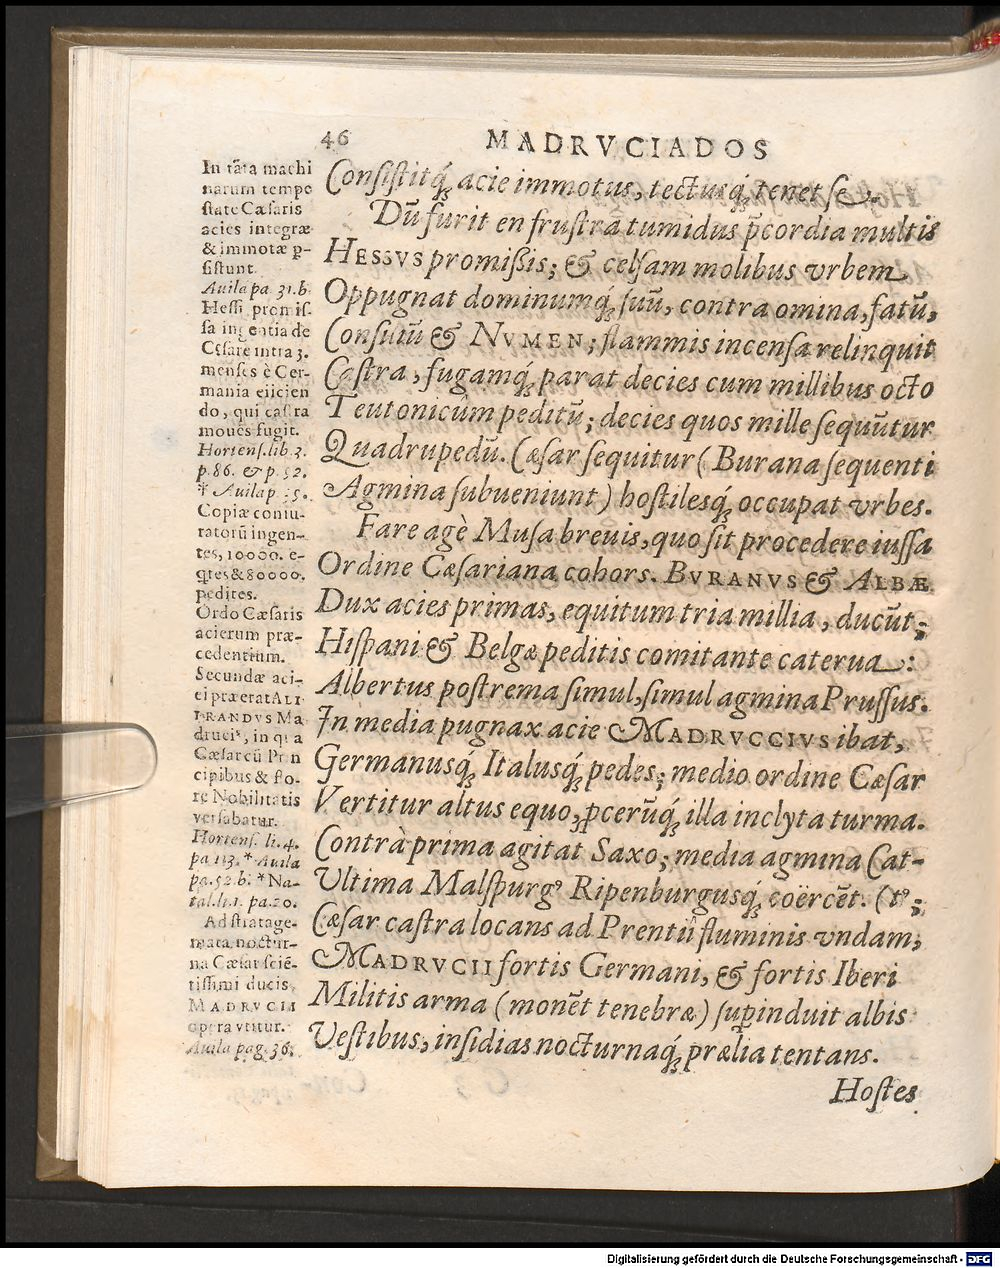 46
MADRVCIADOS
In tāta machi
narum tempe
state Cæsaris
acies integræ
& immotæ p-
sistunt.
Auila pa. 31.b.
Hessi promis-
sa ingentia de
Cęsare intra 3.
menses è Ger-
mania eiicien
do, qui castra
mouēs fugit.
Hortens. lib. 3.
p. 86. & p. 92.
* Auila p.
Copiæ coniu-
ratorū ingen-
tes, 10000. e-
q̃tes & 80000.
pedites.
Ordo Cæsaris
acierum præ-
cedentium.
Secundæ aci-
ei præerat ALI
PRANDVS Ma
druciꝰ, in qua
Cæsar cū Prin
cipibus & flo-
re Nobilitatis
versabatur.
Hortens. li. 4.
pa 113. * Auila
pa. 52.b. * Na-
tal. li.1. pa.20.
Ad stratage-
mata noctur-
na Cæsar sciē-
tissimi ducis
MADRVCII
opera vtitur.
Auila pag. 36.
Consistitq́; acie immotus, tectusq́; tenet se.
Dū furit en frustra tumidus p̄cordia multis
HESSVS promißis; & celsam molibus vrbem
Oppugnat dominumq́; suū, contra omina, fatū,
Consiliū & NVMEN; flammis incensa relinquit
Castra, fugamq́; parat decies cum millibus octo
Teutonicûm peditū; decies quos mille sequūtur
Quadrupedū. Cæsar sequitur (Burana sequenti
Agmina subueniunt) hostilesq́; occupat vrbes.
Fare agè Musa breuis, quo sit procedere iussa
Ordine Cæsariana cohors. BVRANVS & ALBÆ
Dux acies primas, equitum tria millia, ducūt;
Hispani & Belgæ peditis comitante caterua:
Albertus postrema simul, simul agmina Prussus.
In media pugnax acie MADRVCCIVS ibat,
Germanusq́; Italusq́; pedes; medio ordine Cæsar
Vertitur altus equo, ꝓcerūq́; illa inclyta turma.
Contrà prima agitat Saxo; media agmina Cat-
Vltima Malspurgꝰ Ripenburgusq́; coërcēt. (tꝰ;
Cæsar castra locans ad Prentiî fluminis vndam,
MADRVCII fortis Germani, & fortis Iberi
Militis arma (monēt tenebræ) suꝑinduit albis
Vestibus, insidias nocturnaq́; prælia tentans.
Hostes
Digitalisierung gefördert durch die Deutsche Forschungsgemeinschaft - DFG